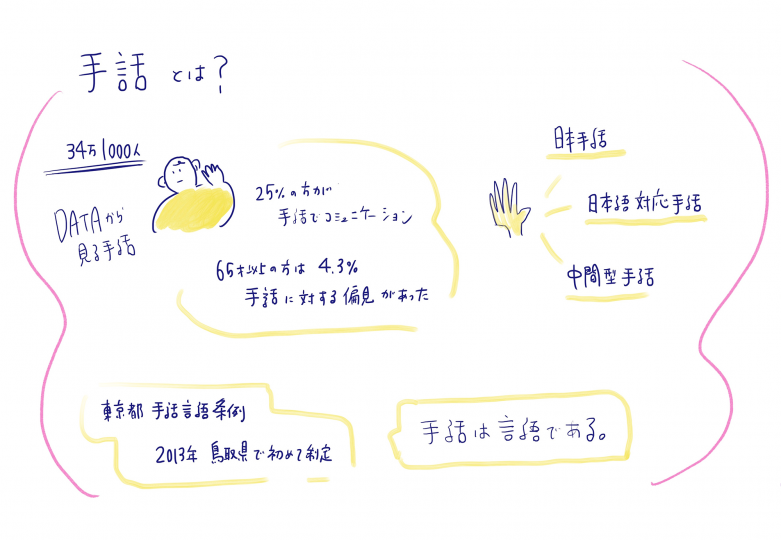 手話とは?
34万1000人
DATAから
見る手話
25%の方が
手話でコミュニケーション
65才以上の方は 4.3%
手話に対する偏見があった
日本手話
日本語対応手話
中間型手話
東京都 手話言語条例
2013年 鳥取県で初めて制定
手話は言語である。